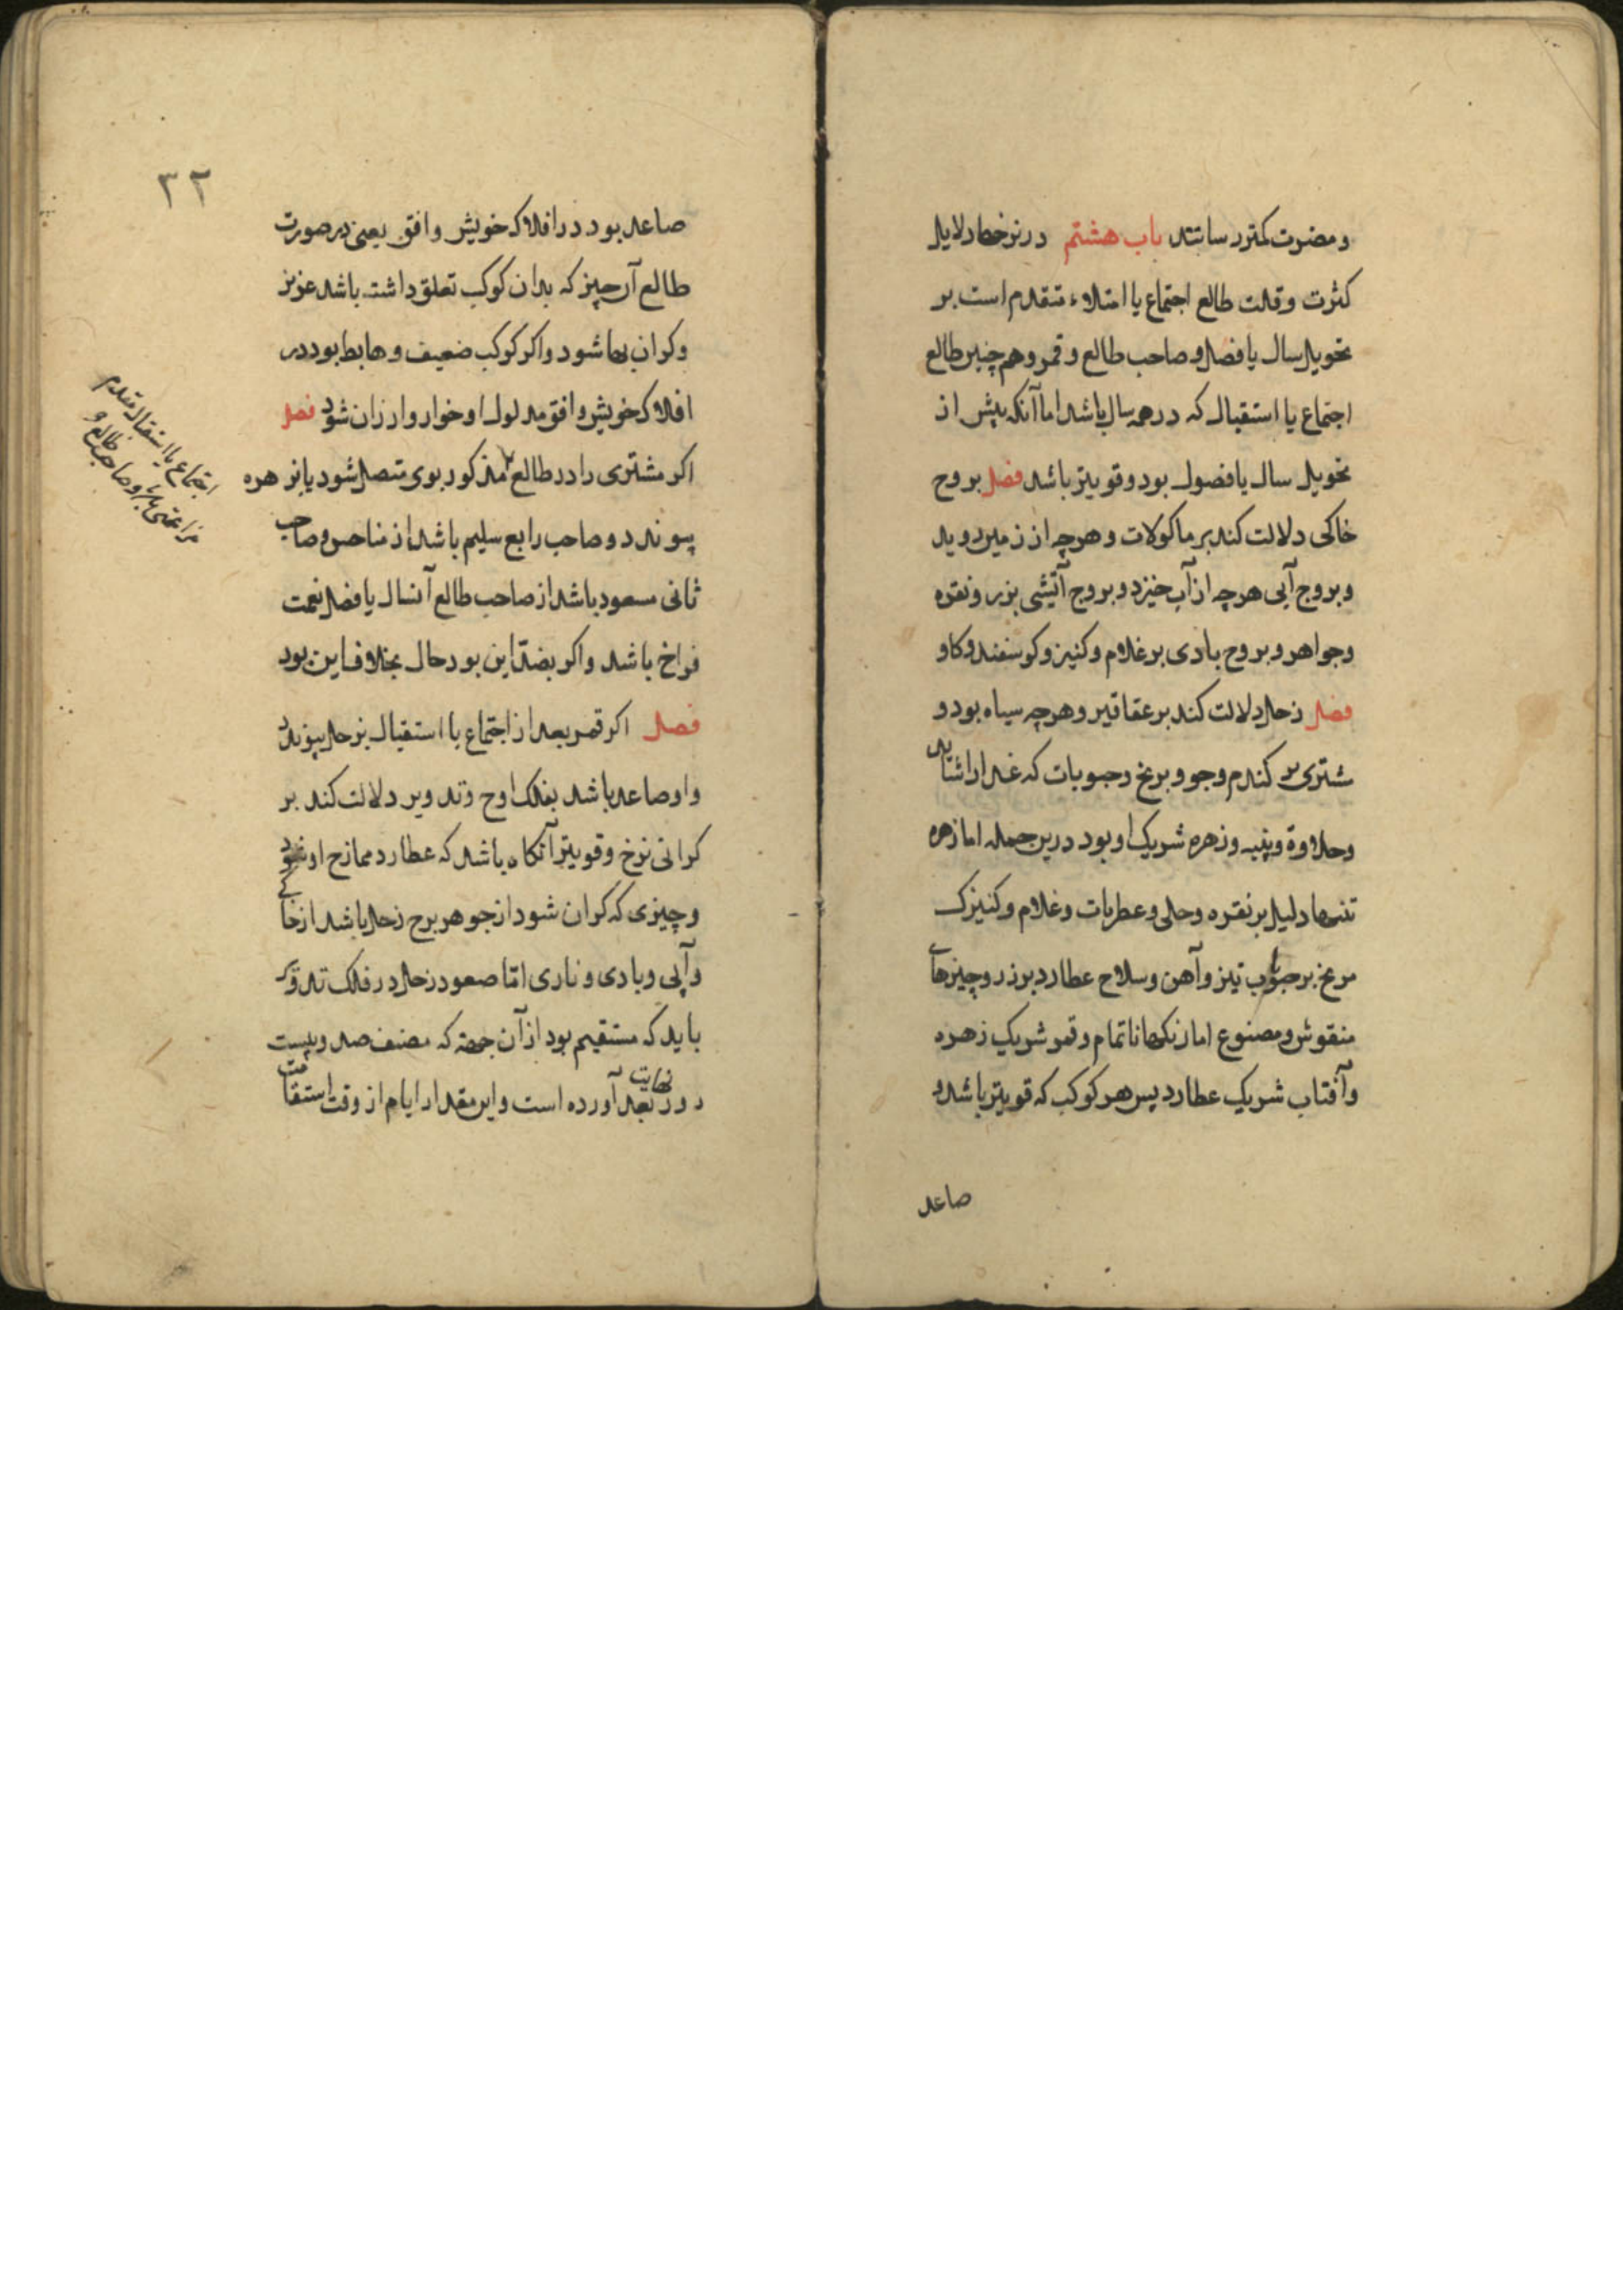 و مضرت کمتر رسانند باب هشتم در نرخها دلایل
کثرت و قلت طالع اجتماع یا امتلاء متقدم است بر
تحویل سال یا فصل و صاحب طالع و قمر و هم چنین طالع
اجتماع یا استقبال که در همه سال باشد اما آنکه پیش از
تحویل سال یا فصول بود و قویتر باشد فصل بروج
خاکی دلالت کند بر ماکولات و هر چه از زمین روید
و بروج آبی هر چه از آب خیزد و بروج آتشی بزر و نقره
و جواهر و بروج بادی بر غلام و کنیز و کوسفند و کاو
فصل زحل دلالت کند بر عقاقیر و هر چه سیاه بود و
مشتری بر کندم و جو و برنج و حبوبات که غذا را شاید
و حلاوة و پنبه و زهره شریک او بود درین جمله اما زهره
تنها دلیل بر نقره و حلی و عطریات و غلام و کنیزک
مریخ بر حبوب تیز و آهن و سلاح عطارد بر زر و چیزهای
منقوش و مصنوع اما رنکها ناتمام و قمر شریک زهره
و آفتاب شریک عطارد پس هر کوکب که قویتر باشد و
صاعد
۳۲
صاعد بود در افلاک خویش و افق یعنی در صورت
طالع آن چیز که بدان کوکب تعلق داشته باشد عزیز
و کران بها شود و اکر کوکب ضعیف و هابط بود در
افلاک خویش و افق مدلول او خوار و ارزان شود فصل
اکر مشتری را در طالع مذکور بوی متصل شود یا بزهره
پیوندد و صاحب رابع سلیم باشد از مناحس و صاحب
ثانی مسعود باشد از صاحب طالع آنسال یا فصل نعمت
فراخ باشد و اکر بضد این بود حال بخلاف این بود
فصل اکر قمر بعد از اجتماع یا استقبال بزحل پیوندد
و او صاعد باشد بفلک اوج و تدویر دلالت کند بر
کرانی نرخ و قویتر آنکاه باشد که عطارد ممازج او شود
و چیزی که کران شود از جوهر برج زحل باشد از خاکی
و آبی و بادی و ناری اما صعود زحل در فلک تدویر
باید که مستقیم بود از آن جهة که مصنف صد و بیست
درز نهایت بعد آورده است و این مقدار ایام از وقت استقامت
اجتماع یا استقبال متقدم
و صاحب طالع و